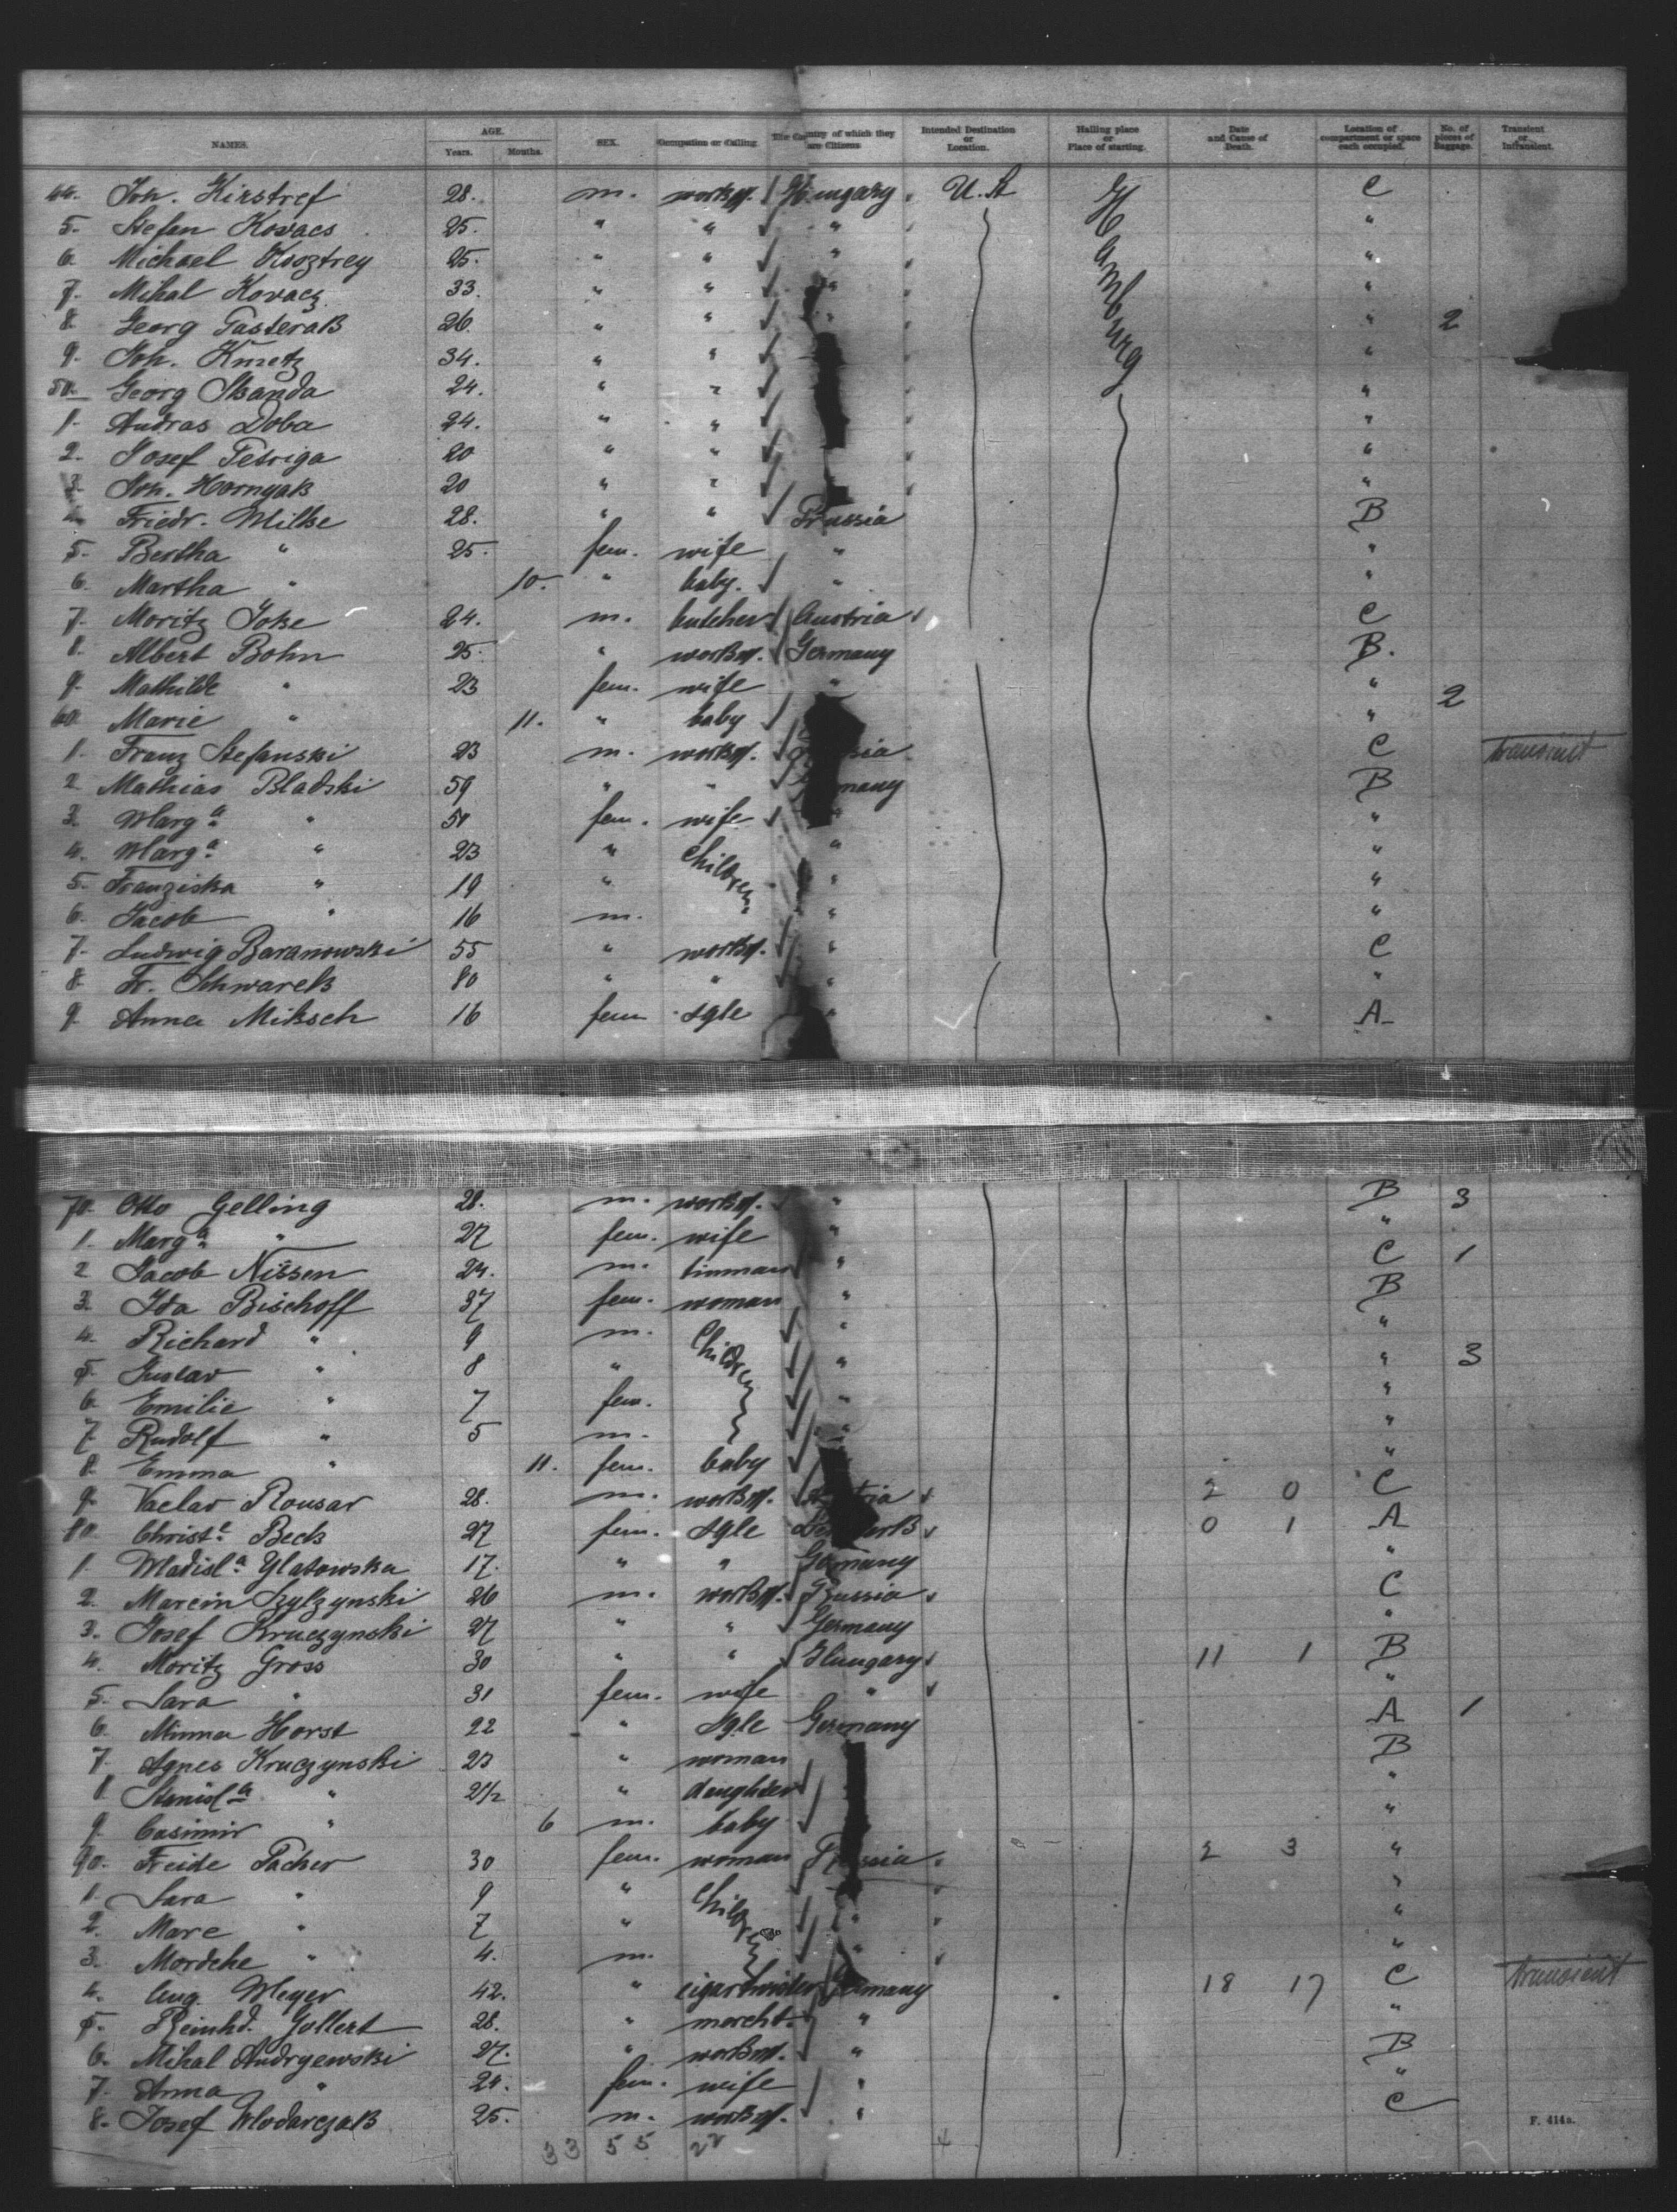 NAMES. AGE. Years. Months. SEX. Occupation or Calling. The Country of which they are Citizens Intended Destination or Location. Hailing place or Place of starting. Date and Cause of Death. Location of compartment or space each occupied. No. of pieces of Baggage. Transient or Intransient.
44. Joh. Kirstref 28. m. workm. Hungary U. St Hamburg C
5. Stefan Kovacs 25. " " " "
6. Michael Kosztrey 25. " " " "
7. Mihal Kovacz 33. " " " "
8. Georg Pasterak 26. " " " " 2
9. Joh. Kmetz 34. " " "
50. Georg Skanda 24. " " "
1. Andras Doba 24. " " "
2. Josef Petriga 20 " " "
3. Joh. Hornyak 20 " " "
4. Friedr. Wilke 28. " " Prussia B
5. Bertha " 25. fem. wife " "
6. Martha " 10. " baby. " "
7. Moritz Joke 24. m. butcher Austria C
8. Albert Bohn 25. " workm. Germany B.
9. Mathilde " 23 fem. wife " " 2
60. Marie " 11. " baby "
1. Franz Stefanski 23 m. workm. C transient
2 Mathias Bladski 59 " " Germany B
3. Marga " 51 fem. wife "
4. Marga " 23 " Children " "
5. Franziska " 19 " " "
6. Jacob " 16 m. " "
7. Ludwig Baranowski 55 " workm. " C
8. Fr. Schwarek 80 " " " "
9. Anna Miksch 16 fem sgle " A
70. Otto Gelling 28. m. workm. " B 3
1. Marga " 27 fem. wife " "
2 Jacob Nissen 24. m. tinman " C 1
3. Ida Bischoff 37 fem. woman " B
4. Richard " 9 m. Children " "
5. Gustav " 8 " " " 3
6. Emilie " 7 fem. " "
7. Rudolf " 5 m. " "
8. Emma " 11. fem. baby "
9. Vaclav Rousar 28. m. workm. Austria 2 0 C
80. Christe Beck 27 fem. sgle Denmark 0 1 A
1. Wladisla Glatowska 17. " " Germany "
2. Marcin Szylzynski 26 m. workm. Russia C
3. Josef Kruczynski 27 " " Germany "
4. Moritz Gross 30 " " Hungary 11 1 B
5. Sara " 31 fem. wife " "
6. Minna Horst 22 " sgle Germany A 1
7. Agnes Kruczynski 23 " woman B
8. Stanisla " 2 1/2 " daughter "
9. Casimir " 6 m. baby "
90. Freide Pacher 30 fem. woman 2 3 "
1. Sara " 9 " Children "
2. Mare " 7 " " "
3. Mordche " 4. m. " "
4. Aug. Meyer 42. " Germany 18 17 C transient
5. Reinhd. Gollert 28. " mercht. " "
6. Mihal Andryewski 27. " workm. " B
7. Anna " 24. fem. wife " "
8. Josef Wlodarczak 25. m. workm. " C
33 55 22
F. 414a.